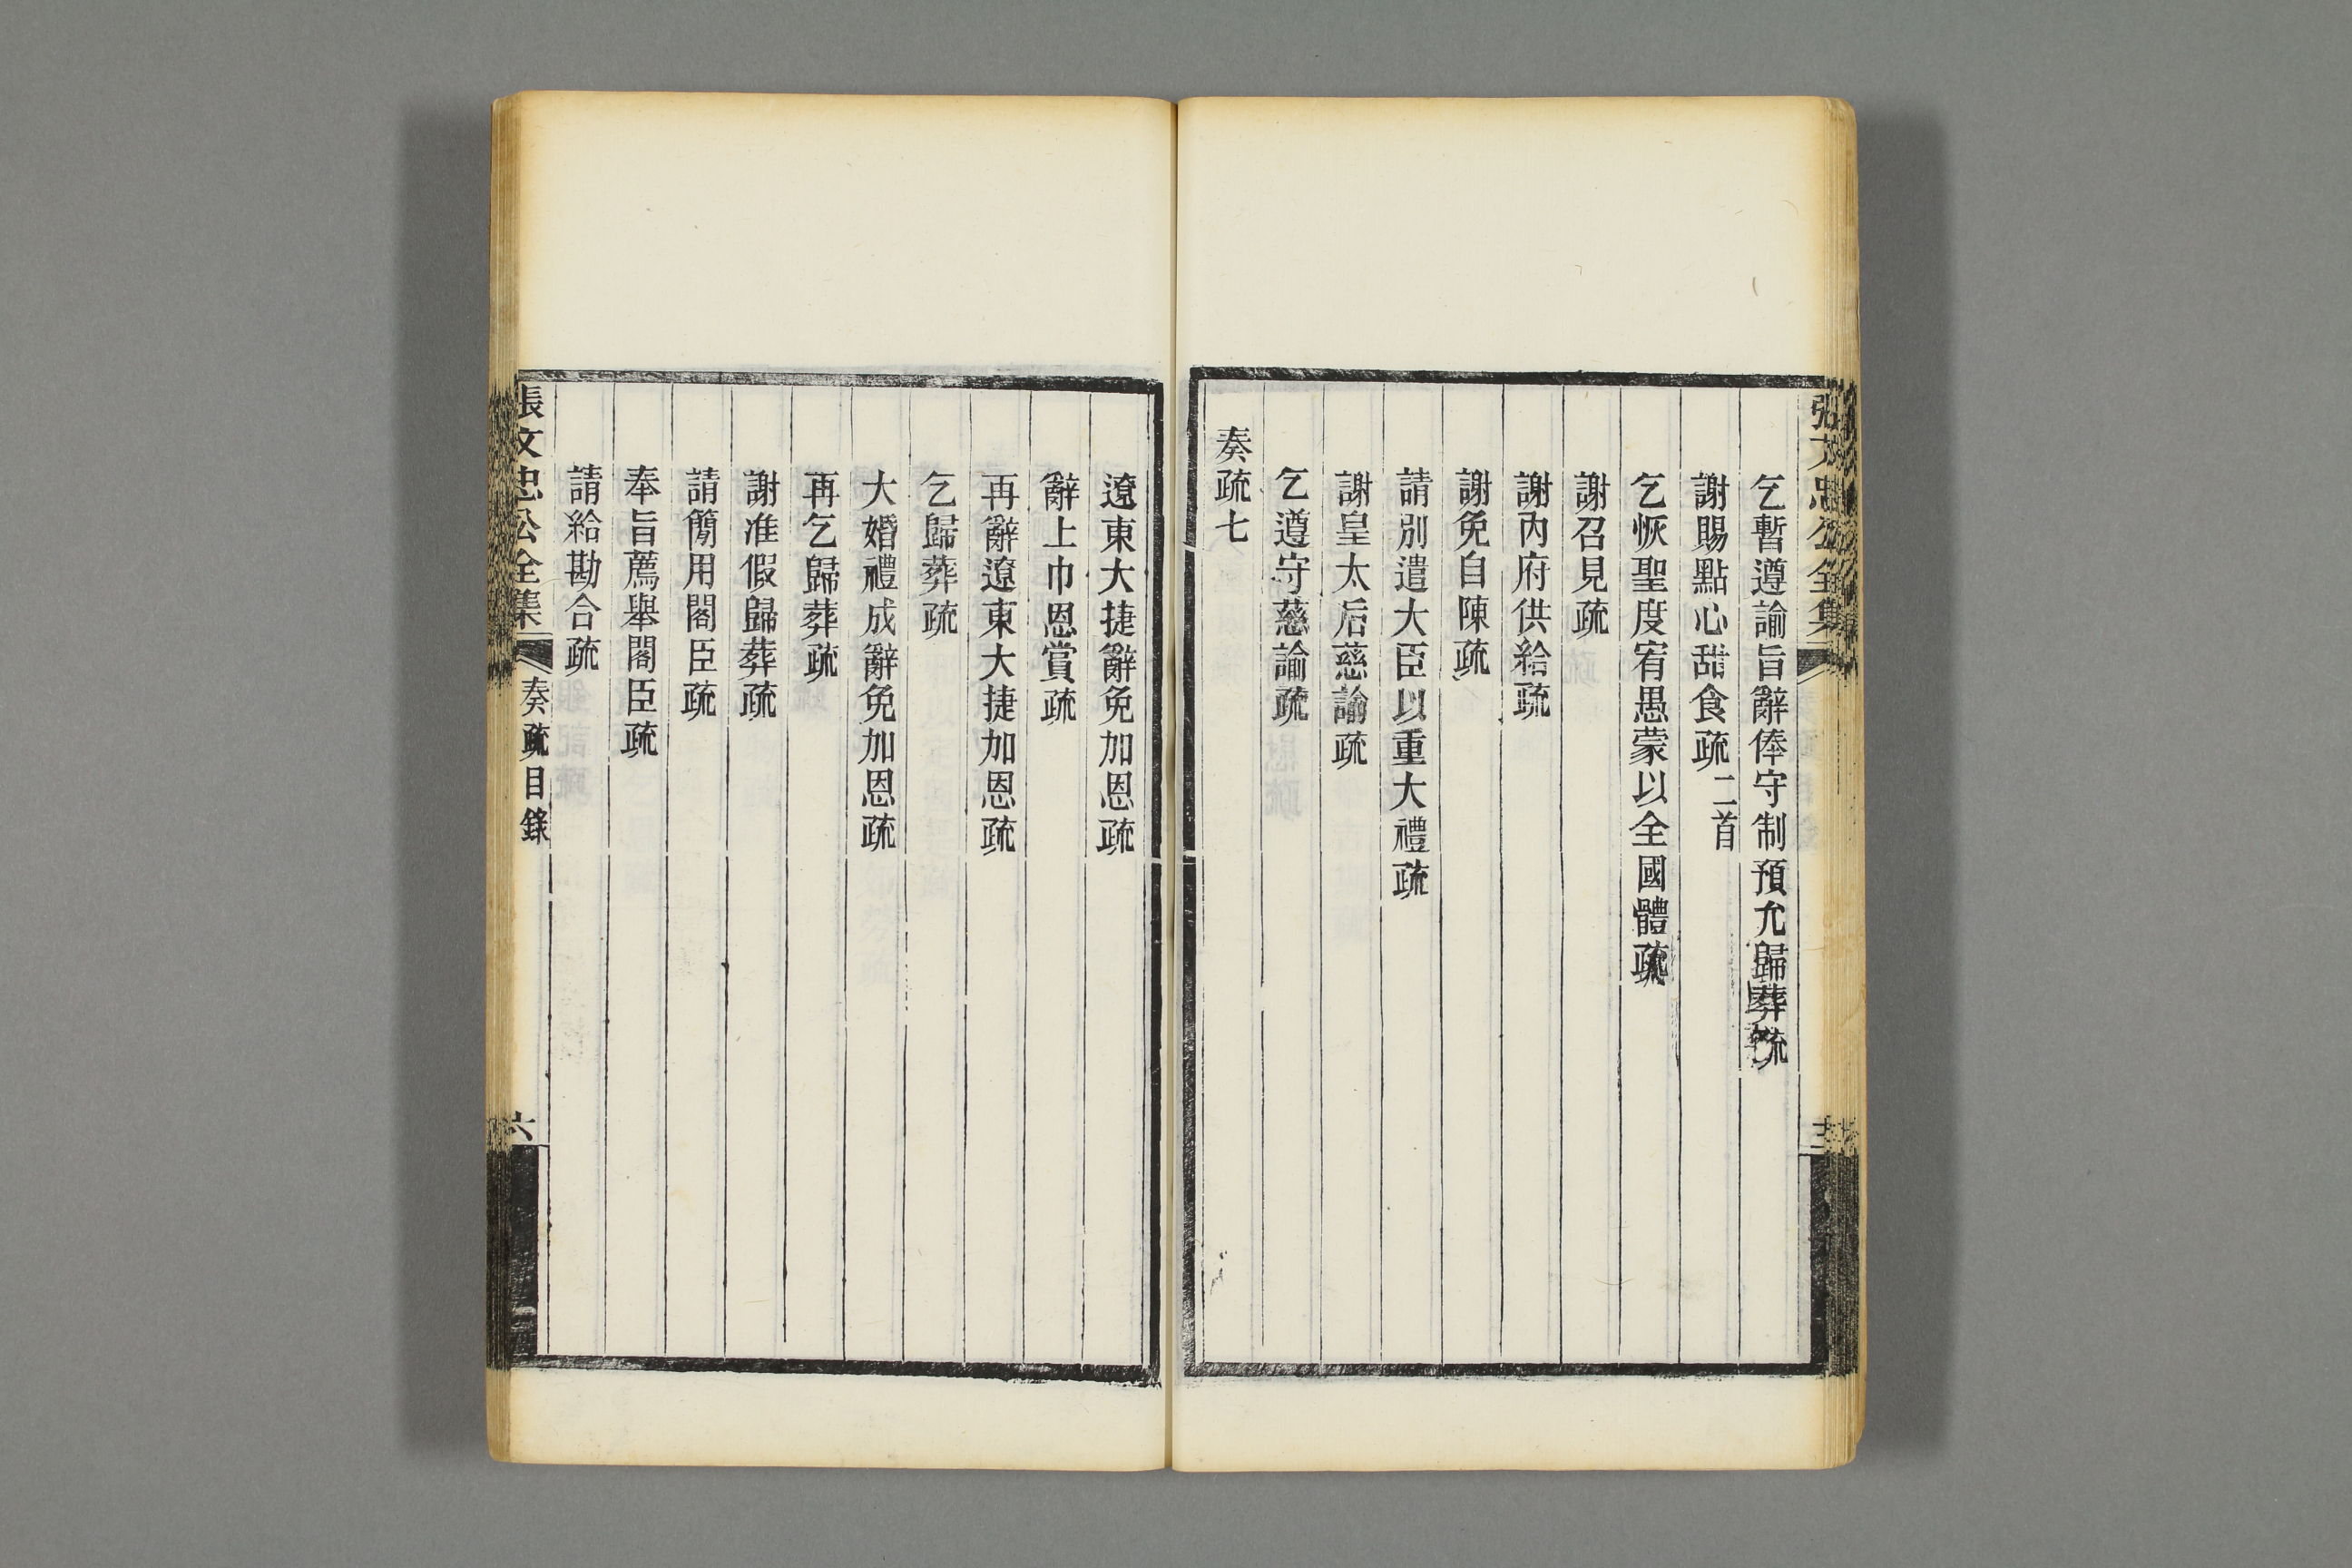 張文忠公全集
乞暫遵諭旨辭俸守制預允歸葬疏
謝賜點心甜食疏二首
乞恢聖度宥愚蒙以全國體疏
謝召見疏
謝內府供給疏
謝免自陳疏
請別遣大臣以重大禮疏
謝皇太后慈諭疏
乞遵守慈諭疏
奏疏七
遼東大捷辭免加恩疏
辭上巾恩賞疏
再辭遼東大捷加恩疏
乞歸葬疏
大婚禮成辭免加恩疏
再乞歸葬疏
謝准假歸葬疏
請簡用閣臣疏
奉旨薦舉閣臣疏
請給勘合疏
張文忠公全集 奏疏目錄 六